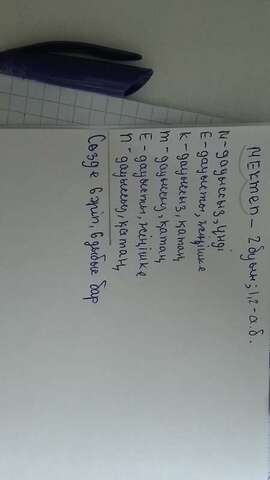 Мектеп – 2 буын; 1,2 – а.б.
М - дауыссыз, үнді
Е - дауысты, жіңішке
к - дауыссыз, қатаң
т - дауыссыз, қатаң
Е - дауысты, жіңішке
п - дауыссыз, қатаң
Сөзде 6 әріп, 6 дыбыс бар